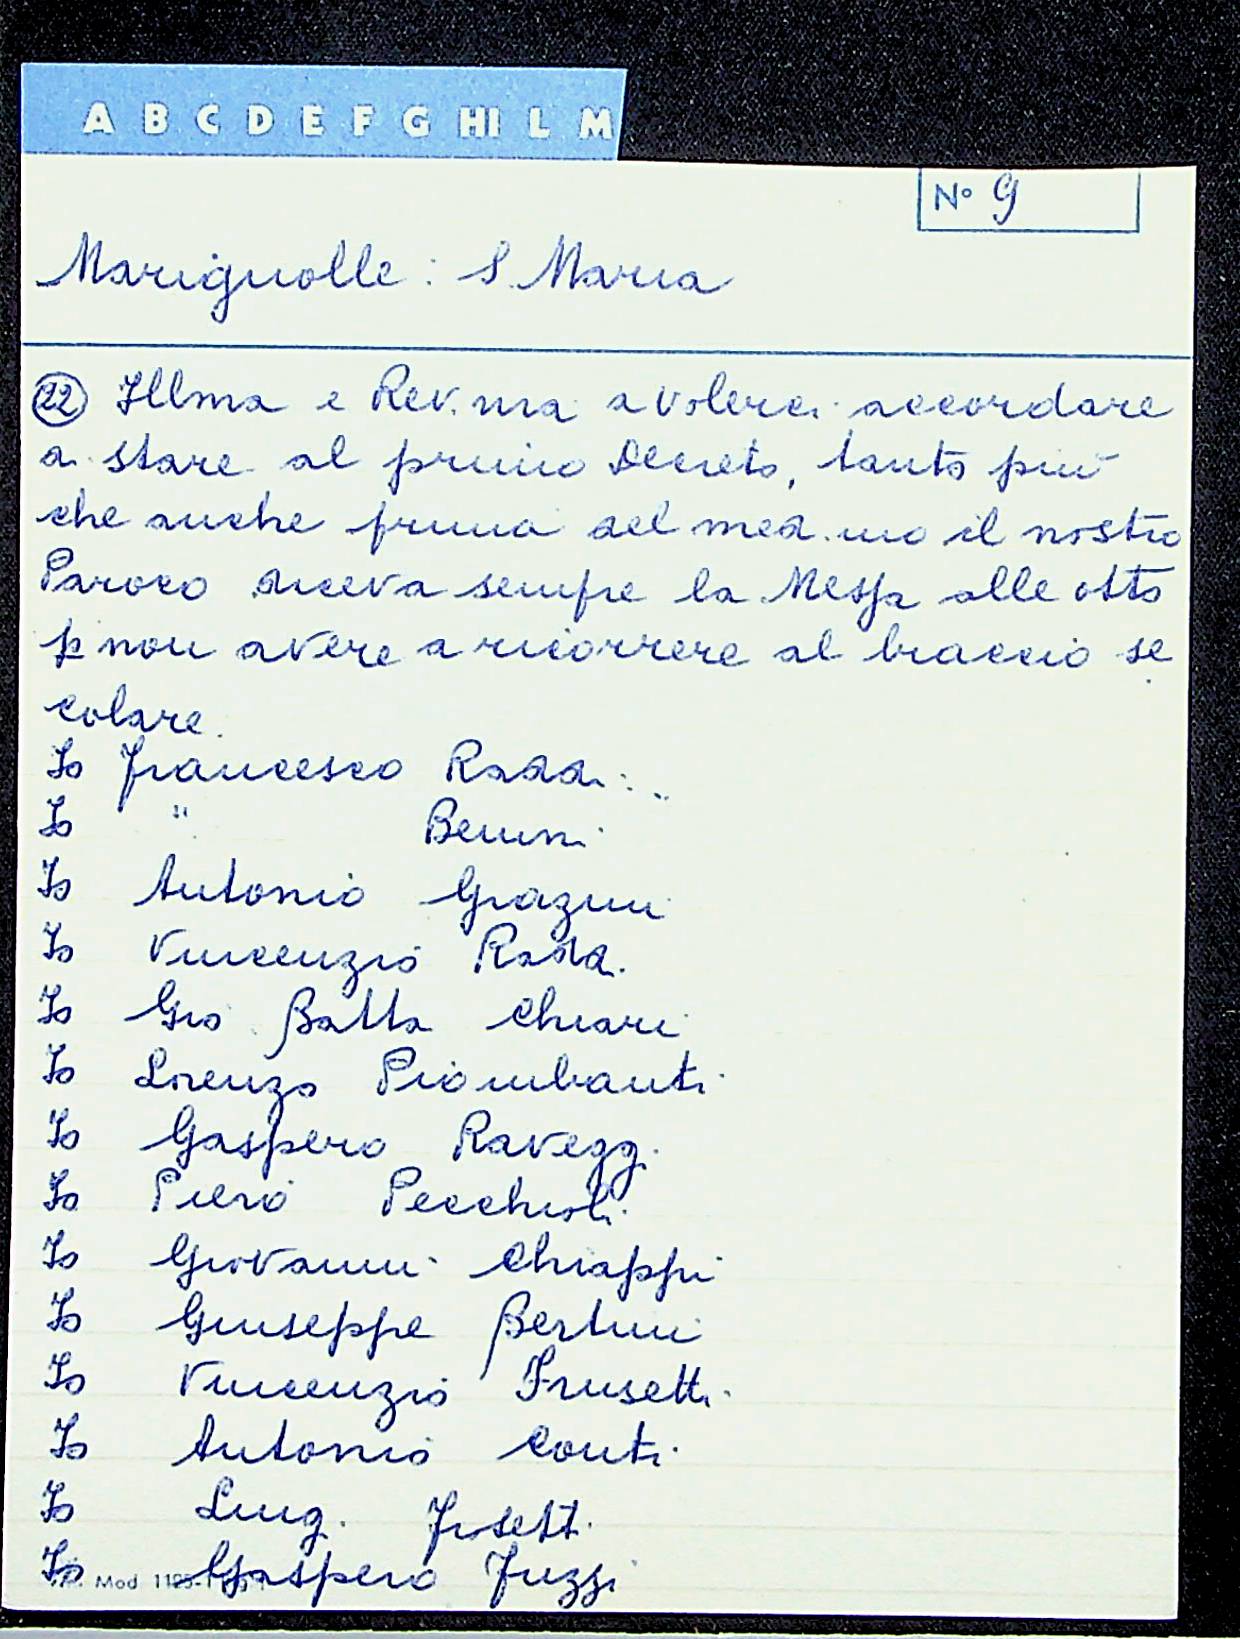 A B C D E F G HI L M
N° 9
Marignolle: S. Maria
22 Illma e Rev.ma a volerci accordare
a stare al primo Decreto, tanto più
che anche prima del med.mo il nostro
Paroco diceva sempre la Messa alle otto
p non avere a ricorrere al braccio se
colare.
Io Francesco Raddi
Io " Benini
Io Antonio Grazini
Io Vincenzio Raddi
Io Gio Batta Chiari
Io Lorenzo Piombanti
Io Gaspero Raveggi
Io Piero Pecchioli
Io Giovanni Chiappi
Io Giuseppe Bertini
Io Vincenzio Frusetti
Io Antonio Conti
Io Luigi
Io Gaspero
Mod